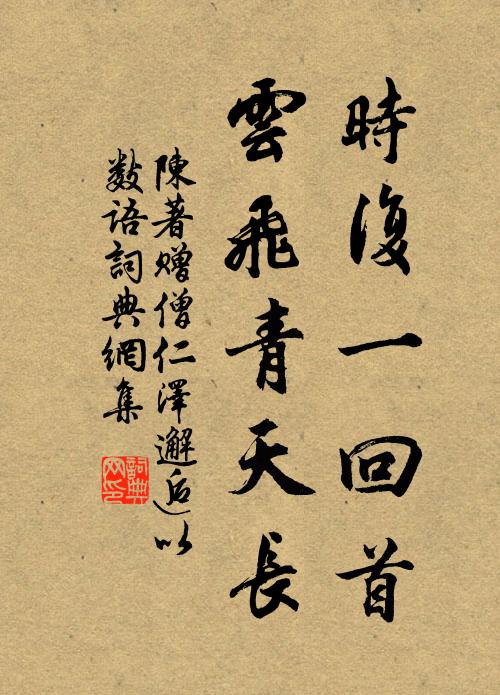 時復一回首
雲飛青天長
陳著贈僧仁澤邂逅以
數语詞典網集
詞典
网印